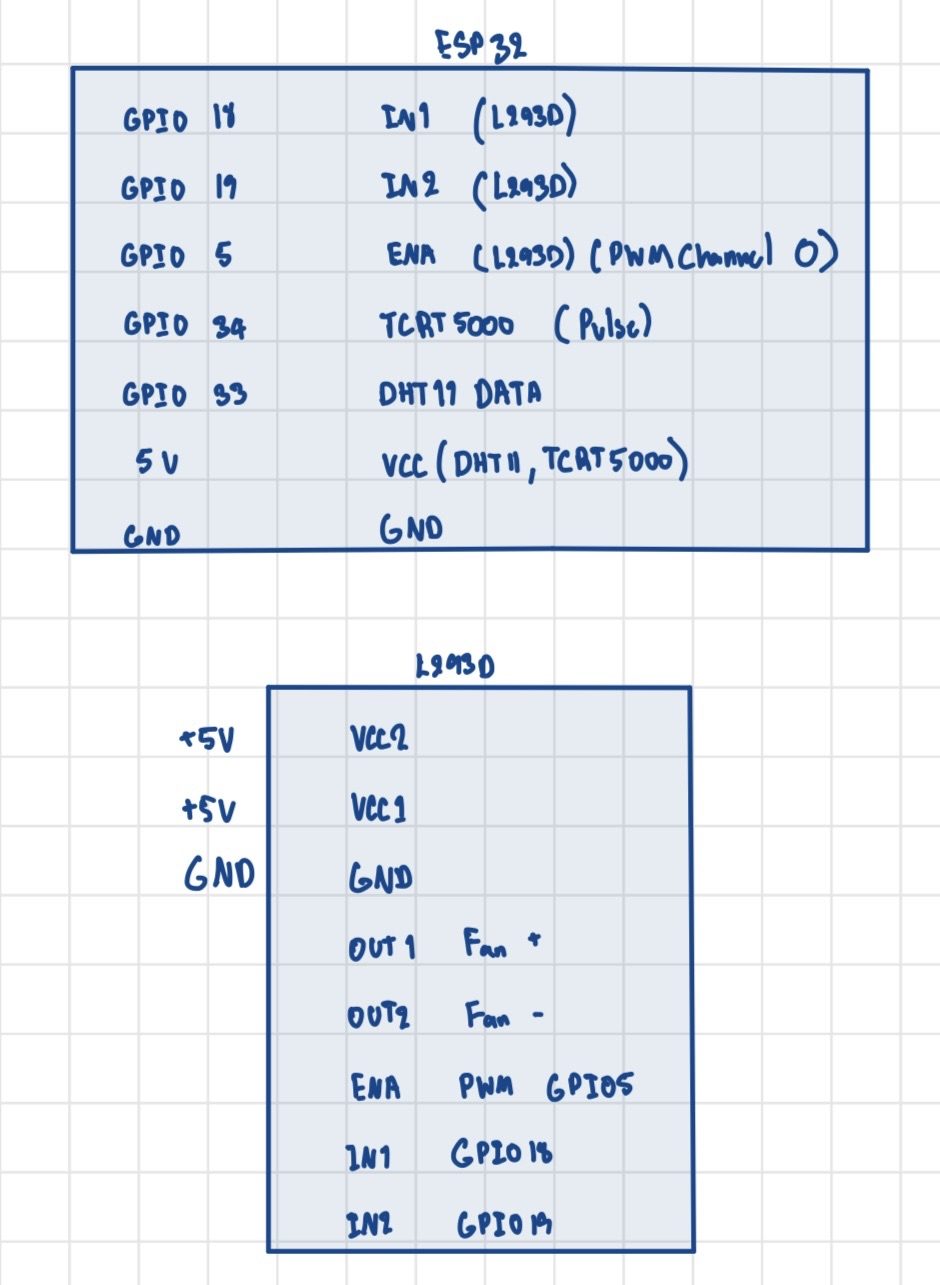 ESP32
GPIO 18 IN1 (L293D)
GPIO 19 IN2 (L293D)
GPIO 5 ENA (L293D) (PWM Channel 0)
GPIO 34 TCRT5000 (Pulse)
GPIO 33 DHT11 DATA
5V VCC (DHT11, TCRT5000)
GND GND
L293D
+5V VCC2
+5V VCC1
GND GND
OUT1 Fan +
OUT2 Fan -
ENA PWM GPIO5
IN1 GPIO18
IN2 GPIO19